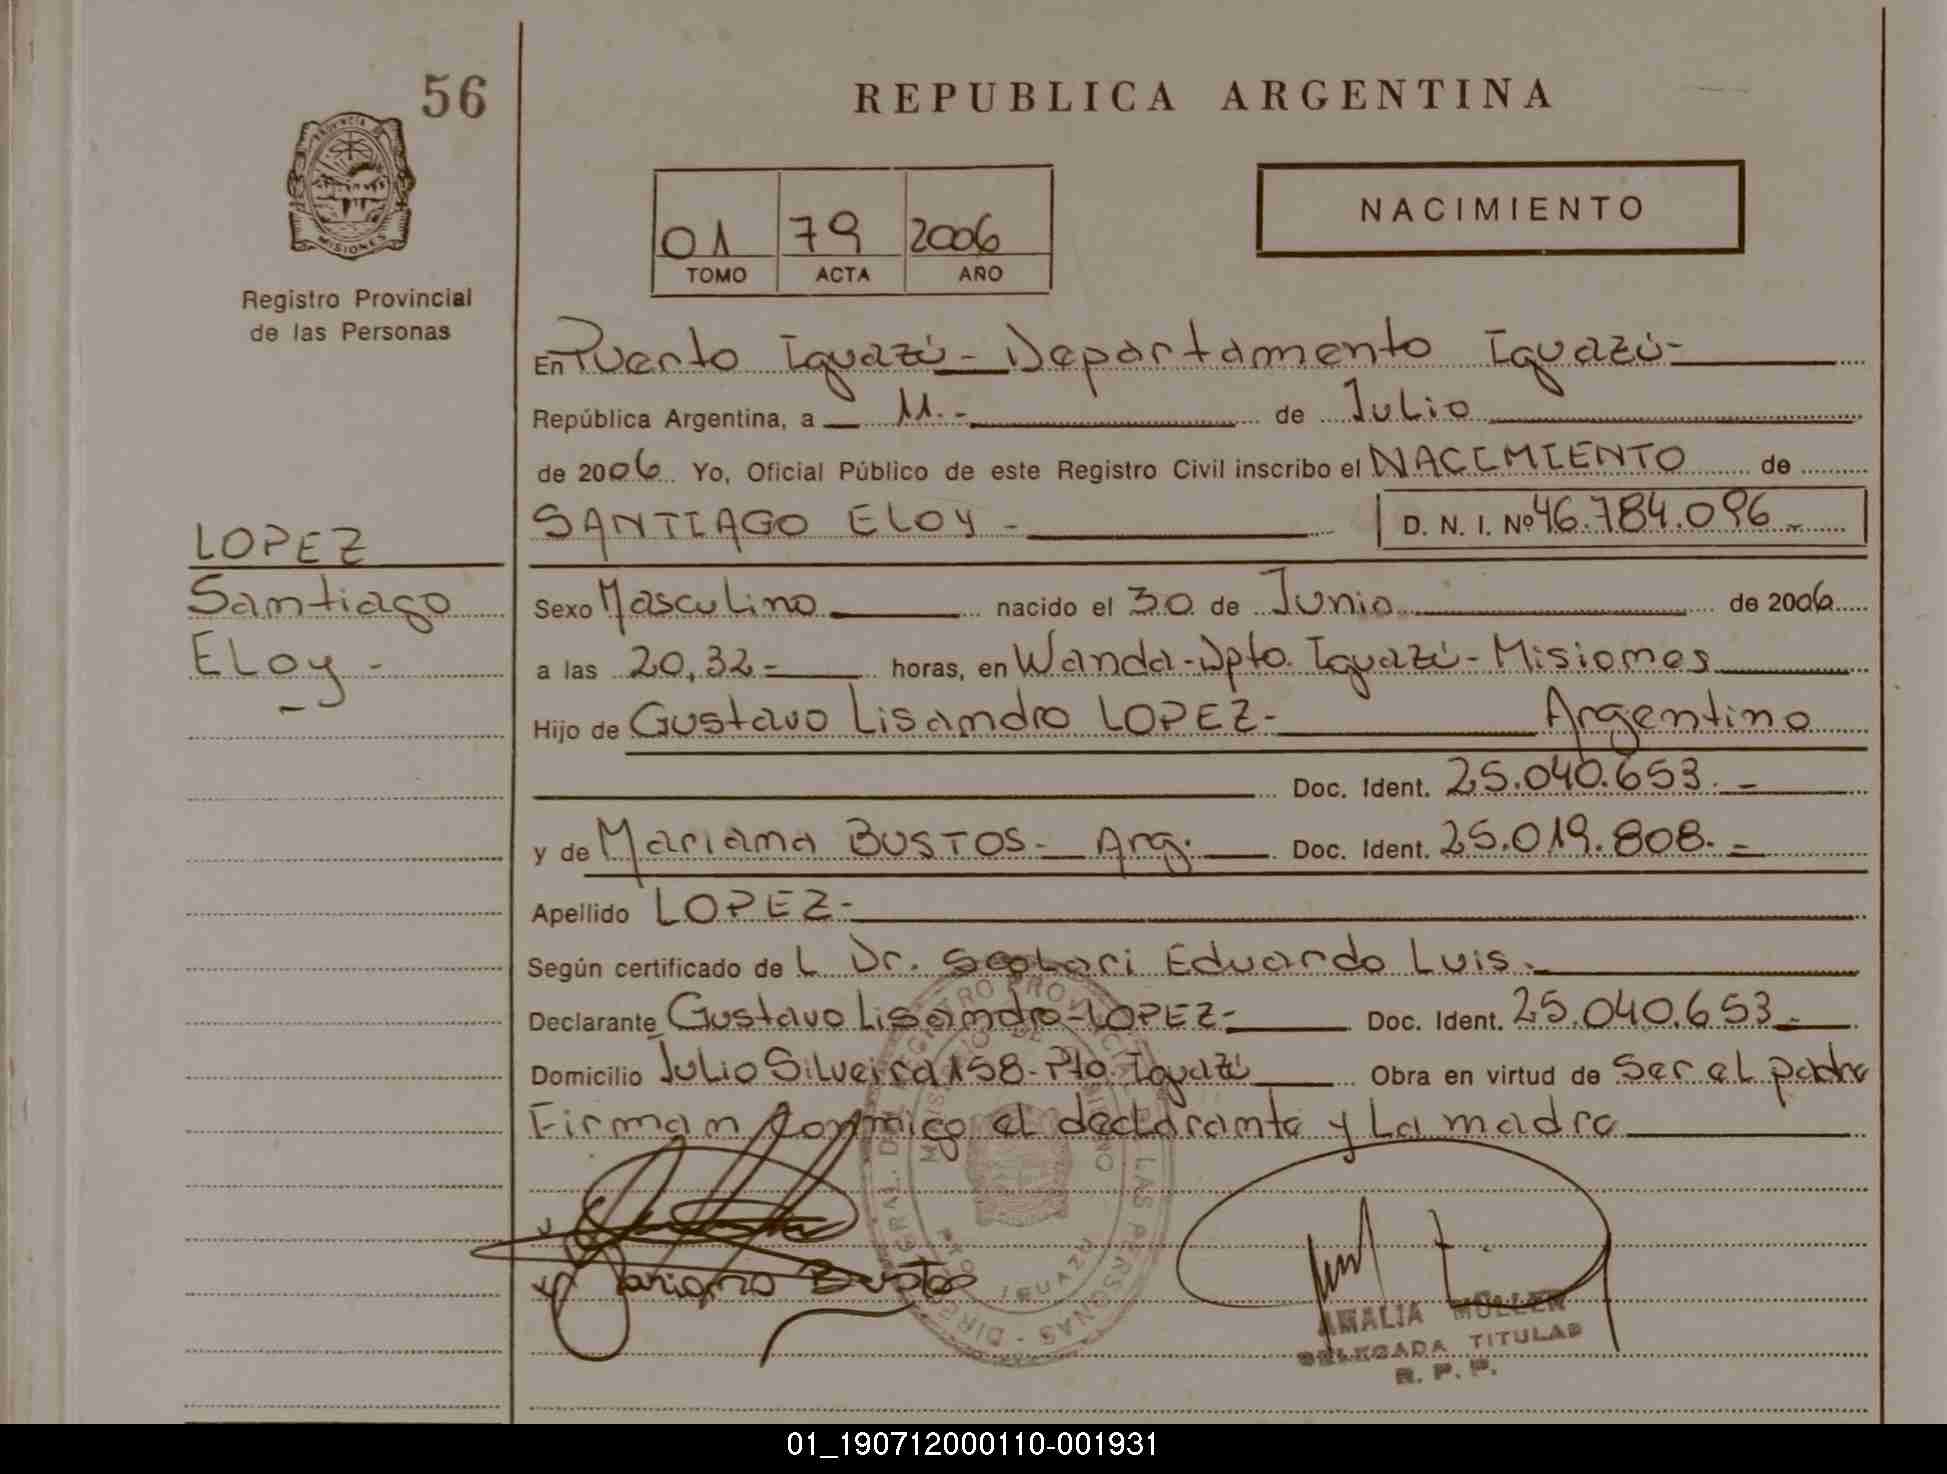 56
REPUBLICA ARGENTINA
PROVINCIA
MISIONES
Registro Provincial
de las Personas
01 79 2006
TOMO ACTA AÑO
NACIMIENTO
En Puerto Iguazú - Departamento Iguazú -
República Argentina, a 11.- de Julio
de 2006 Yo, Oficial Público de este Registro Civil inscribo el NACIMIENTO de
SANTIAGO ELOY - D. N. I. Nº 46.784.096 -
LOPEZ
Santiago
Eloy -
Sexo Masculino nacido el 30 de Junio de 2006
a las 20,32 - horas, en Wanda - Dpto. Iguazú - Misiones
Hijo de Gustavo Lisandro LOPEZ - Argentino
Doc. Ident. 25.040.653. -
y de Mariana BUSTOS - Arg. Doc. Ident. 25.019.808. -
Apellido LOPEZ -
Según certificado de L Dr. Eduardo Luis.
Declarante Gustavo Lisandro - LOPEZ - Doc. Ident. 25.040.653 -
Domicilio Julio Silveira 158 - Pto. Iguazú Obra en virtud de Ser el padre
Firman conmigo el declarante y La madre
Mariana Bustos
AMALIA MULLER
DELEGADA TITULAR
R. P. P.
01_190712000110-001931